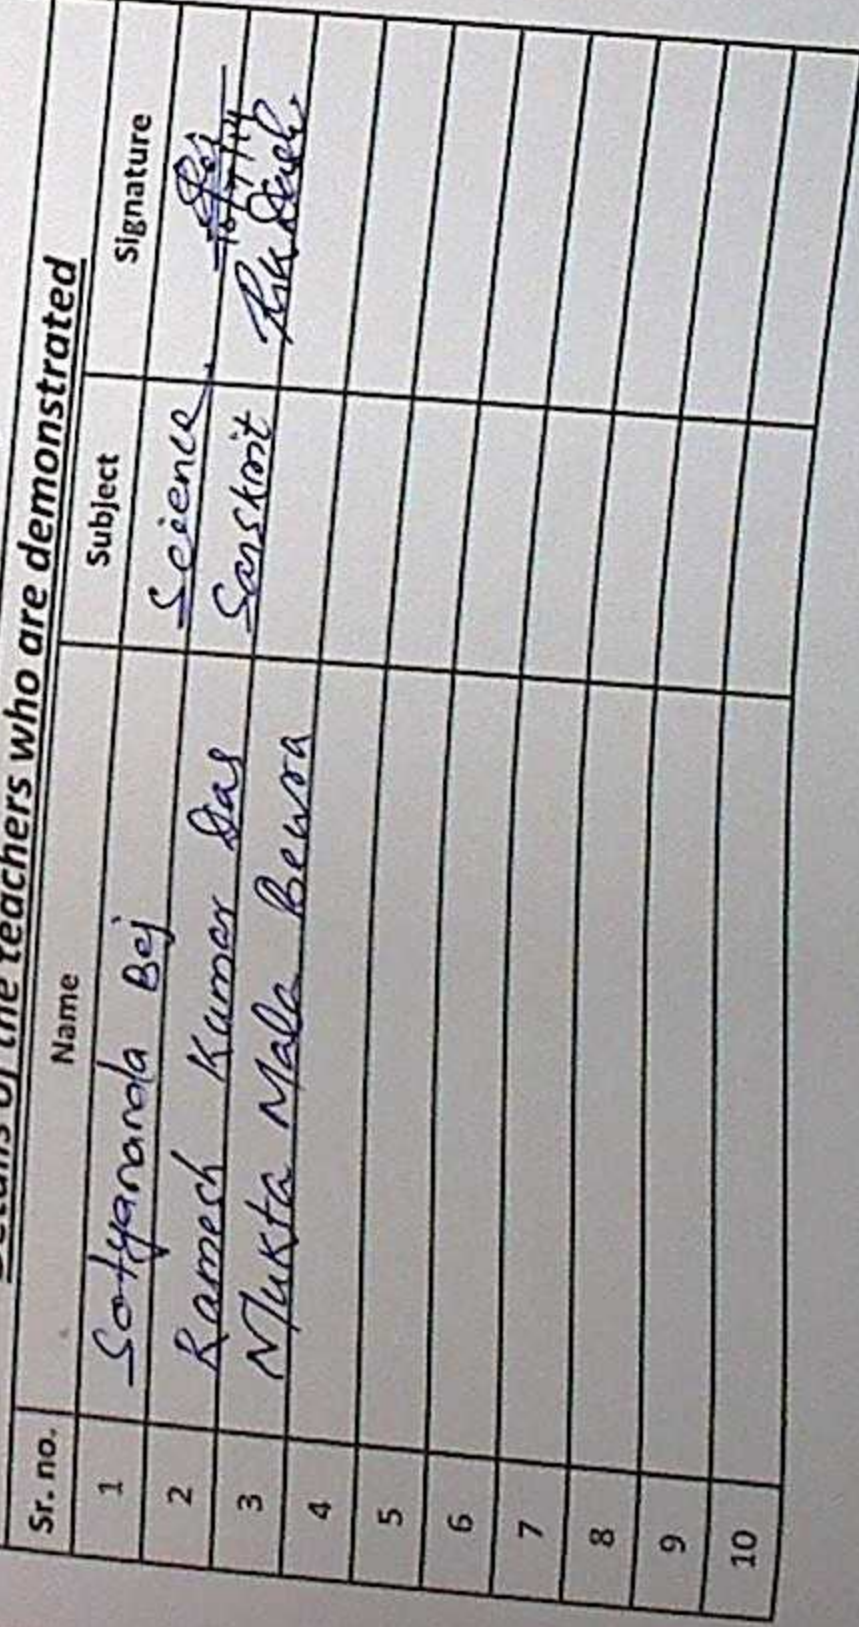 Details of the teachers who are demonstrated
Sr. no. Name Subject Signature
1 Satyananda Bej Science
2 Ramesh Kumar Das Sanskrit
3 Mukta Mala Bewra
4
5
6
7
8
9
10